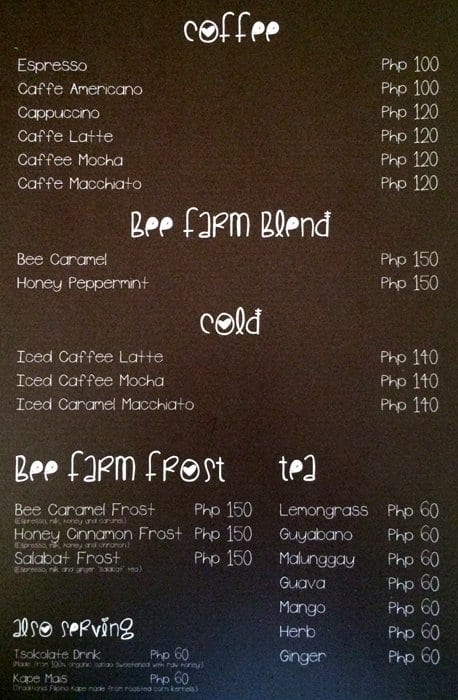 coffee
Espresso Php 100
Caffe Americano Php 100
Cappuccino Php 120
Caffe Latte Php 120
Caffee Mocha Php 120
Caffe Macchiato Php 120
Bee Farm Blend
Bee Caramel Php 150
Honey Peppermint Php 150
cold
Iced Caffee Latte Php 140
Iced Caffee Mocha Php 140
Iced Caramel Macchiato Php 140
Bee Farm Frost
Bee Caramel Frost Php 150
(Espresso, milk, honey and caramel)
Honey Cinnamon Frost Php 150
(Espresso, milk, honey and cinnamon)
Salabat Frost Php 150
(Espresso, milk and ginger "salabat" tea)
also serving
Tsokolate Drink Php 60
(Made from 100% organic cacao sweetened with raw honey)
Kape Mais Php 60
(Traditional Filipino Kape made from roasted corn kernels)
tea
Lemongrass Php 60
Guyabano Php 60
Malunggay Php 60
Guava Php 60
Mango Php 60
Herb Php 60
Ginger Php 60